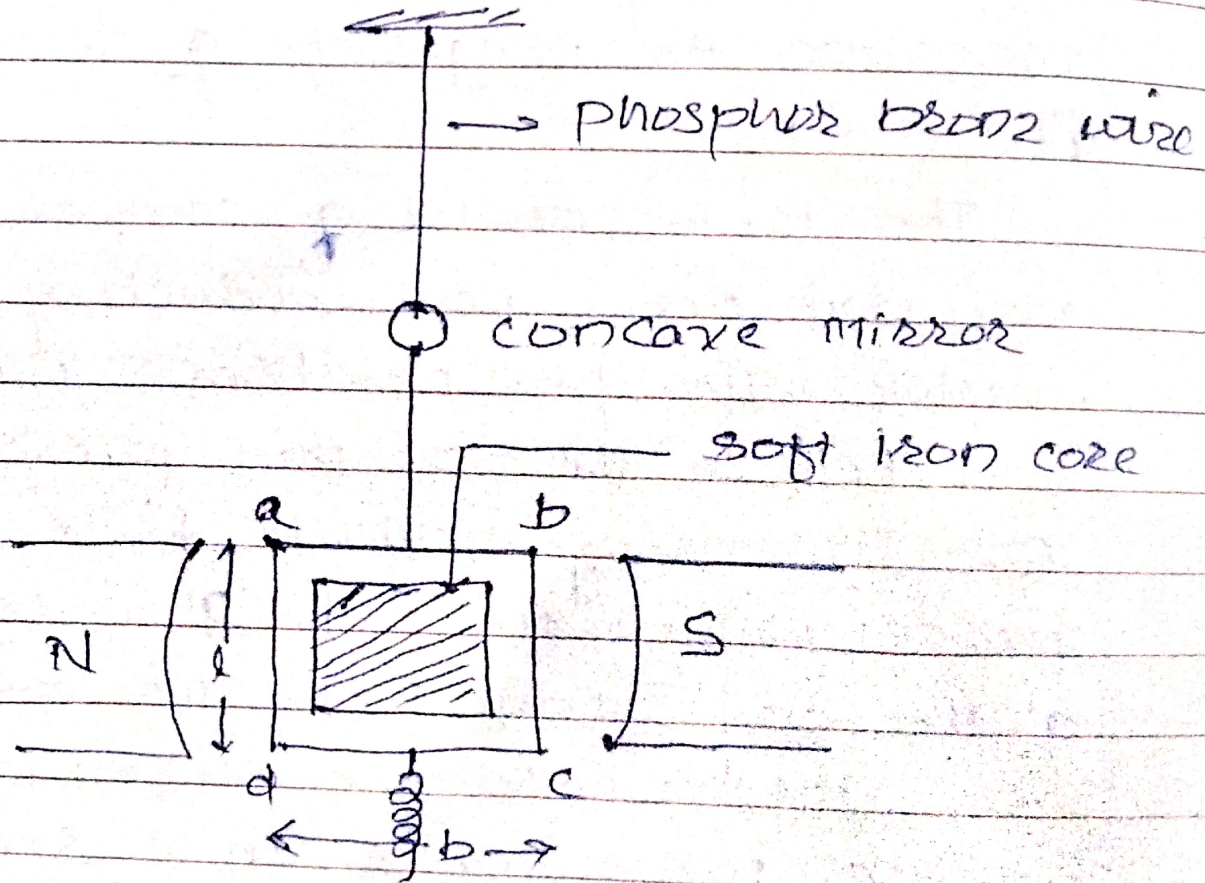 phosphor bronz wire
concave mirror
soft iron core
a b
N l S
d c
b